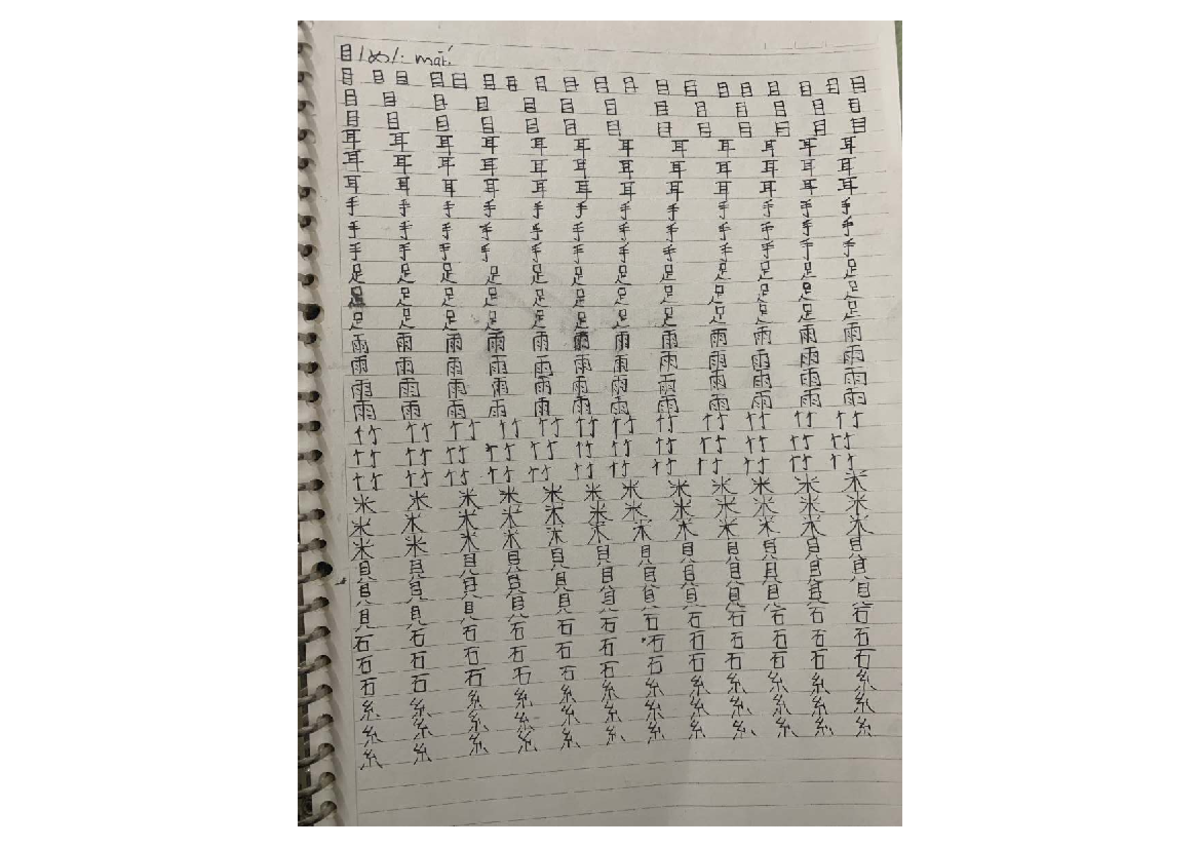 目/め/: mắt.
目 目 目 目 目 目 目 目 目 目 目 目 目 目 目 目 目 目 目
目 目 目 目 目 目 目 目 目 目 目 目 目
目 目 目 目 目 目 目 目 目 目 目 目 目
耳 耳 耳 耳 耳 耳 耳 耳 耳 耳 耳 耳
耳 耳 耳 耳 耳 耳 耳 耳 耳 耳 耳 耳
耳 耳 耳 耳 耳 耳 耳 耳 耳 耳 耳 耳
手 手 手 手 手 手 手 手 手 手 手 手
手 手 手 手 手 手 手 手 手 手 手 手
手 手 手 手 手 手 手 手 手 手 手 手
足 足 足 足 足 足 足 足 足 足 足 足
足 足 足 足 足 足 足 足 足 足 足 足
足 足 足 足 足 足 足 足 足 足 足 足
雨 雨 雨 雨 雨 雨 雨 雨 雨 雨 雨 雨
雨 雨 雨 雨 雨 雨 雨 雨 雨 雨 雨 雨
雨 雨 雨 雨 雨 雨 雨 雨 雨 雨 雨 雨
雨 雨 雨 雨 雨 雨 雨 雨 雨 雨 雨 雨
竹 竹 竹 竹 竹 竹 竹 竹 竹 竹 竹 竹
竹 竹 竹 竹 竹 竹 竹 竹 竹 竹 竹 竹
竹 竹 竹 竹 竹 竹 竹 竹 竹 竹 竹 竹
米 米 米 米 米 米 米 米 米 米 米 米
米 米 米 米 米 米 米 米 米 米 米 米
米 米 米 米 米 米 米 米 米 米 米
貝 貝 貝 貝 貝 貝 貝 貝 貝 貝 貝 貝
貝 貝 貝 貝 貝 貝 貝 貝 貝 貝 貝 貝
貝 貝 貝 貝 貝 貝 貝 貝 貝 貝 貝 貝
石 石 石 石 石 石 石 石 石 石 石 石
石 石 石 石 石 石 石 石 石 石 石 石
石 石 石 石 石 石 石 石 石 石 石 石
糸 糸 糸 糸 糸 糸 糸 糸 糸 糸 糸 糸
糸 糸 糸 糸 糸 糸 糸 糸 糸 糸 糸 糸
糸 糸 糸 糸 糸 糸 糸 糸 糸 糸 糸 糸